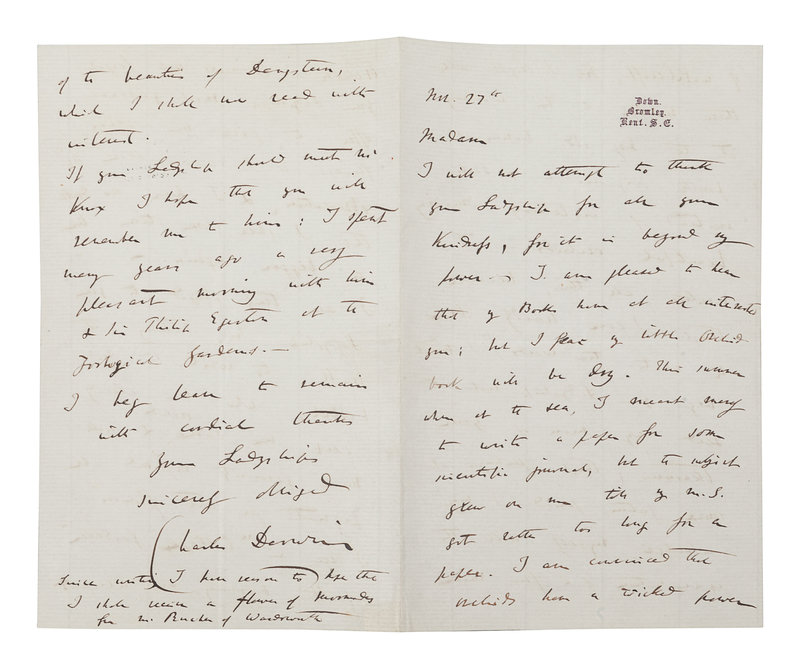 Down.
Bromley.
Kent. S.E.
Nov. 27th
Madam
I will not attempt to thank
your Ladyship for all your
kindness, for it is beyond my
power. — I am pleased to hear
that my Books have at all interested
you; but I fear my little Orchid
book will be dry. This summer
when at the sea, I meant merely
to write a paper for some
scientific journal, but the subject
grew on me till my M.S.
got rather too long for a
paper. I am convinced that
orchids have a wicked power
of the beauties of
which I shall now read with
interest.
If your Ladyship should meet Mr.
Knox I hope that you will
remember me to him: I spent
many years ago a very
pleasant morning with him
& Sir Philip Egerton at the
Zoological Gardens. —
I beg leave to remain
with cordial thanks
Your Ladyship's
sincerely obliged
Charles Darwin
Since writing I have reason to hope that
I shall receive a flower of Mormodes
from Mr. Rucker of Wandsworth